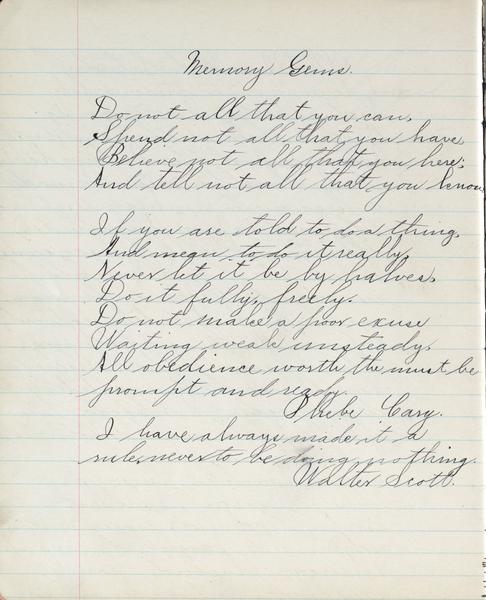 Memory Gems.
Do not all that you can,
Spend not all that you have,
Believe not all that you here;
And tell not all that you know
If you are told to do a thing,
And mean to do it really,
Never let it be by halves,
Do it fully, freely.
Do not make a poor excuse
Waiting weak unsteady,
All obedience worth the must be
prompt and ready.
Phebe Cary.
I have always made it a
rule, never to be doing nothing.
Walter Scott.